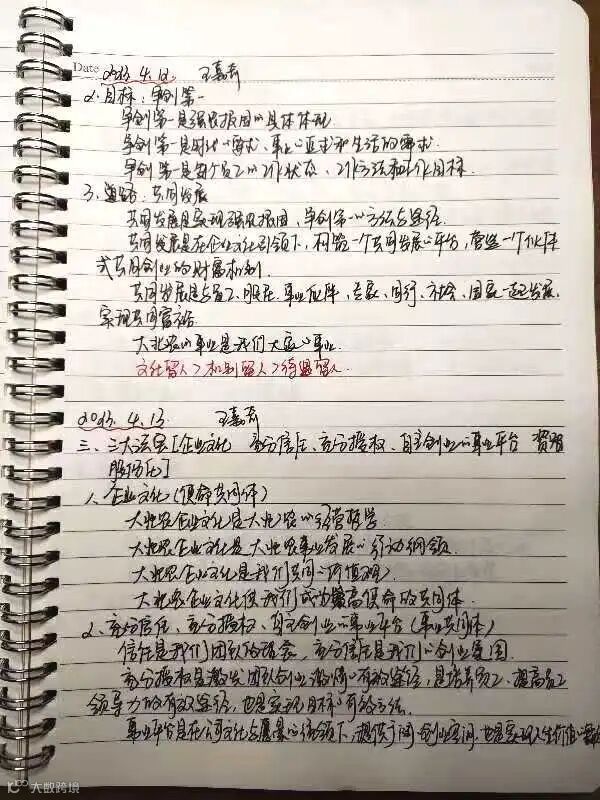 Date 2023.4.12. 王嘉奇
2.目标:争创第一
争创第一是强农报国的具体体现
争创第一是时代的要求、事业的要求和生活的需求
争创第一是每个员工的工作状态、工作方法和工作目标.
3.道路:共同发展
共同发展是实现强农报国、争创第一的方法与途径.
共同发展是在企业文化引领下,构筑一个共同发展的平台,营造一个伙伴
式共同创业的财富机制.
共同发展是与员工、股东、事业伙伴、专家、同行、社会、国家一起发展,
实现共同富裕
大北农的事业是我们大家的事业.
文化留人>机制留人>待遇留人.
2023.4.13. 王嘉奇
三、三大法宝[企业文化 充分信任、充分授权、自主创业的事业平台
服务化]
1、企业文化(使命共同体)
大北农企业文化是大北农的经营哲学
大北农企业文化是大北农事业发展的行动纲领.
大北农企业文化是我们共同的价值观.
大北农企业文化使我们成为最高使命的共同体.
2、充分信任、充分授权、自主创业的事业平台(事业共同体)
信任是我们团队的理念,充分信任是我们的创业氛围.
充分授权是激发团队创业激情的有效途径,是培养员工、提高员工
领导力的有效途径,也是实现目标的有效方法.
事业平台是在公司文化与愿景的统领下,提供了创业空间,也是实现人生价值的
大数跨境